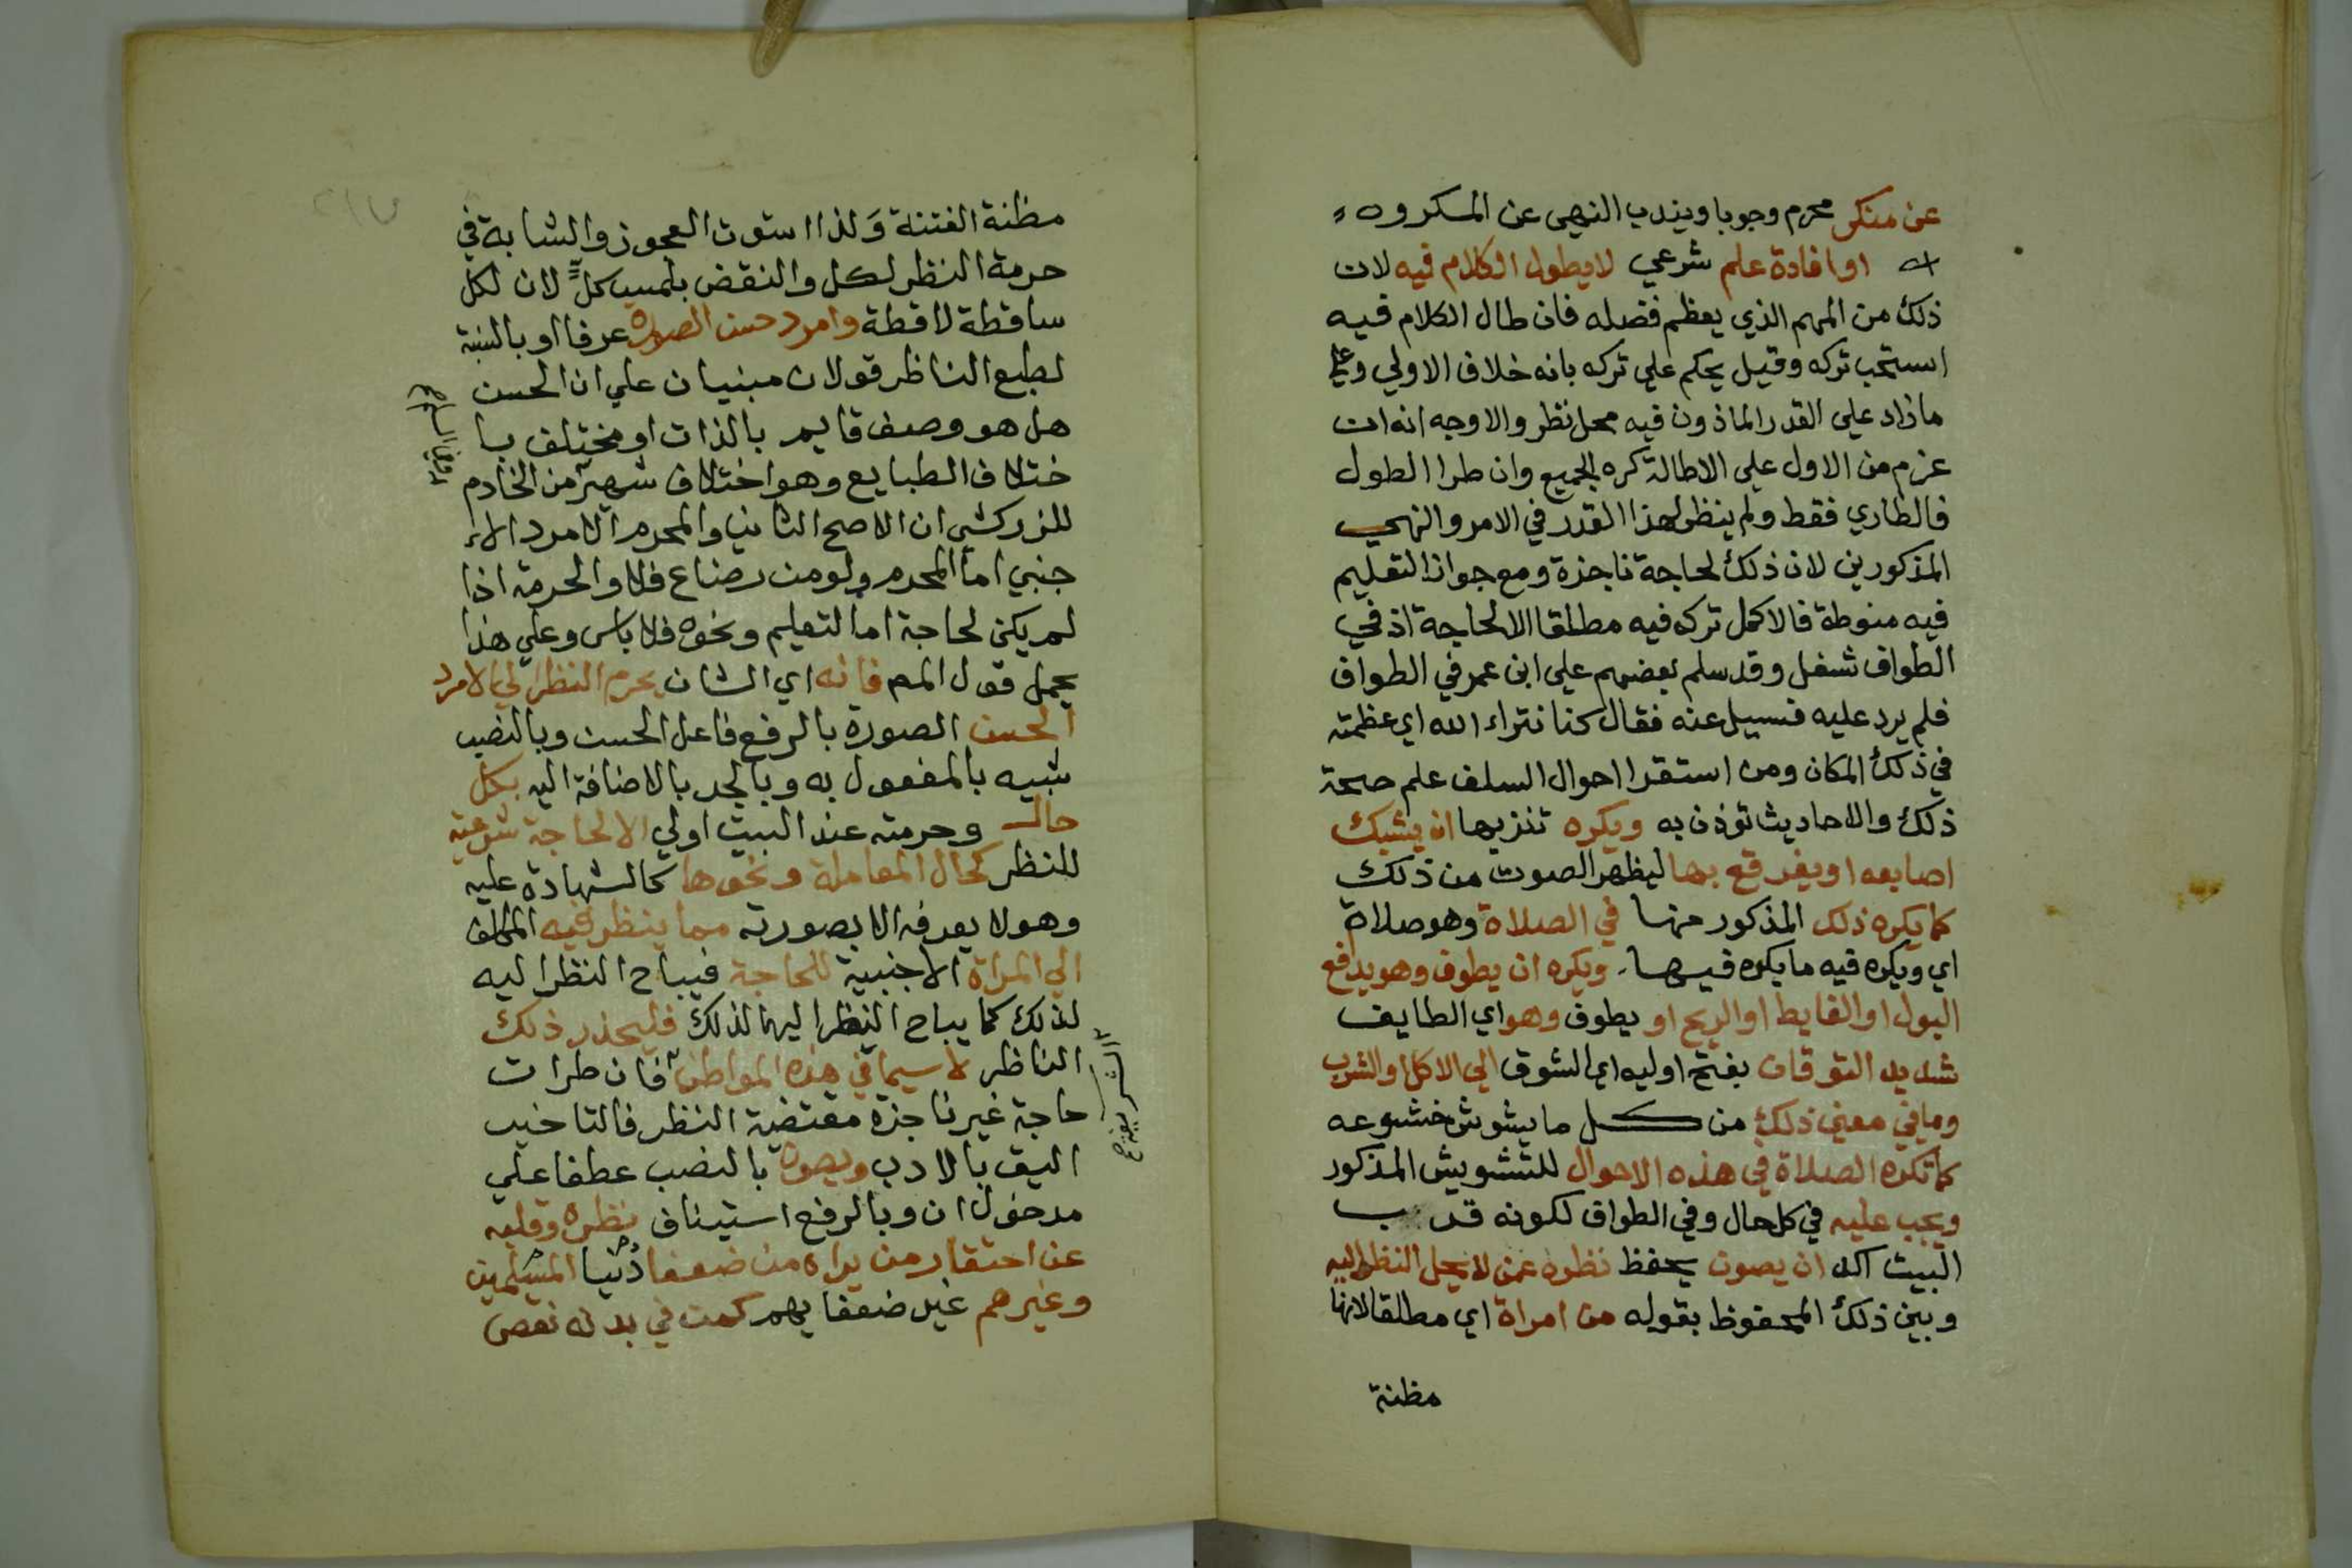 عن منكر محرم وجوبا ويندب النهى عن المكروه
او افادة علم شرعي لا يطول الكلام فيه لان
ذلك من المهم الذي يعظم فضله فان طال الكلام فيه
استحب تركه وقيل يحكم علي تركه بانه خلاف الاولي وعلي
ما زاد علي القدر الماذون فيه محل نظر والاوجه انه ان
عزم من الاول علي الاطالة كره الجميع وان طرا الطول
فالطاري فقط ولم ينظر لهذا القدر في الامر والنهي
المذكورين لان ذلك لحاجة ناجزة ومع جواز التعليم
فيه منوطة فالاكمل تركه فيه مطلقا الا لحاجة اذ في
الطواف شغل وقد سلم بعضهم علي ابن عمر في الطواف
فلم يرد عليه فسيل عنه فقال كنا نتراء الله اي عظمته
في ذلك المكان ومن استقرا احوال السلف علم صحة
ذلك والاحاديث توذن به ويكره تنزيها ان يشبك
اصابعه او يفرقع بها ليظهر الصوت من ذلك
كما يكره ذلك المذكور منها في الصلاة وهو صلاة
اي ويكره فيه ما يكره فيها ويكره ان يطوف وهو يدافع
البول او الغايط او الريح او يطوف وهو اي الطايف
شديد التوقان بفتح اوليه اي الشوق الي الاكل او الشرب
وما في معني ذلك من كل ما يشوش خشوعه
كما تكره الصلاة في هذه الاحوال للتشويش المذكور
ويجب عليه في كل حال وفي الطواف لكونه قرب
البيت اكد ان يصون يحفظ نظره عمن لا يحل النظر اليه
وبين ذلك المحفوظ بقوله من امراة اي مطلقا لانها
مظنة
مظنة الفتنة ولذا استوت العجوز والشابة في
حرمة النظر لكل والنقض بلمس كل لان لكل
ساقطة لاقطة وامرد حسن الصورة عرفا او بالنسبة
لطبع الناظر قولان مبنيان علي ان الحسن
هل هو وصف قايم بالذات او مختلف با
ختلاف الطبايع وهو اختلاف شهير من الخادم
للزركشي ان الاصح الثاني والمحرم الامرد الا
جنبي اما المحرم ولو من رضاع فلا والحرمة اذا
لم يكن لحاجة اما لتعليم ونحوه فلا باس وعلي هذا
يحمل قول المص فانه اي الشان يحرم النظر الي الامرد
الحسن الصورة بالرفع فاعل الحسن وبالنصب
شبيه بالمفعول به وبالجر بالاضافة اليه بكل
حال وحرمته عند البيت اولي الا لحاجة شرعية
للنظر كحال المعاملة ونحوها كالشهادة عليه
وهو لا يعرفه الا بصورته مما ينظر فيه المكلف
الي المراة الاجنبية للحاجة فيباح النظر اليه
لذلك كما يباح النظر اليها لذلك فليحذر ذلك
الناظر لا سيما في هذه المواطن فان طرات
حاجة غير ناجزة مقتضية النظر فالتاخير
اليق بالادب ويصون بالنصب عطفا علي
مدخول ان وبالرفع استيناف نظره وقلبه
عن احتقار من يراه من ضعفا دنيا المسلمين
وغيرهم غير ضعفايهم كمن في بدنه نقص